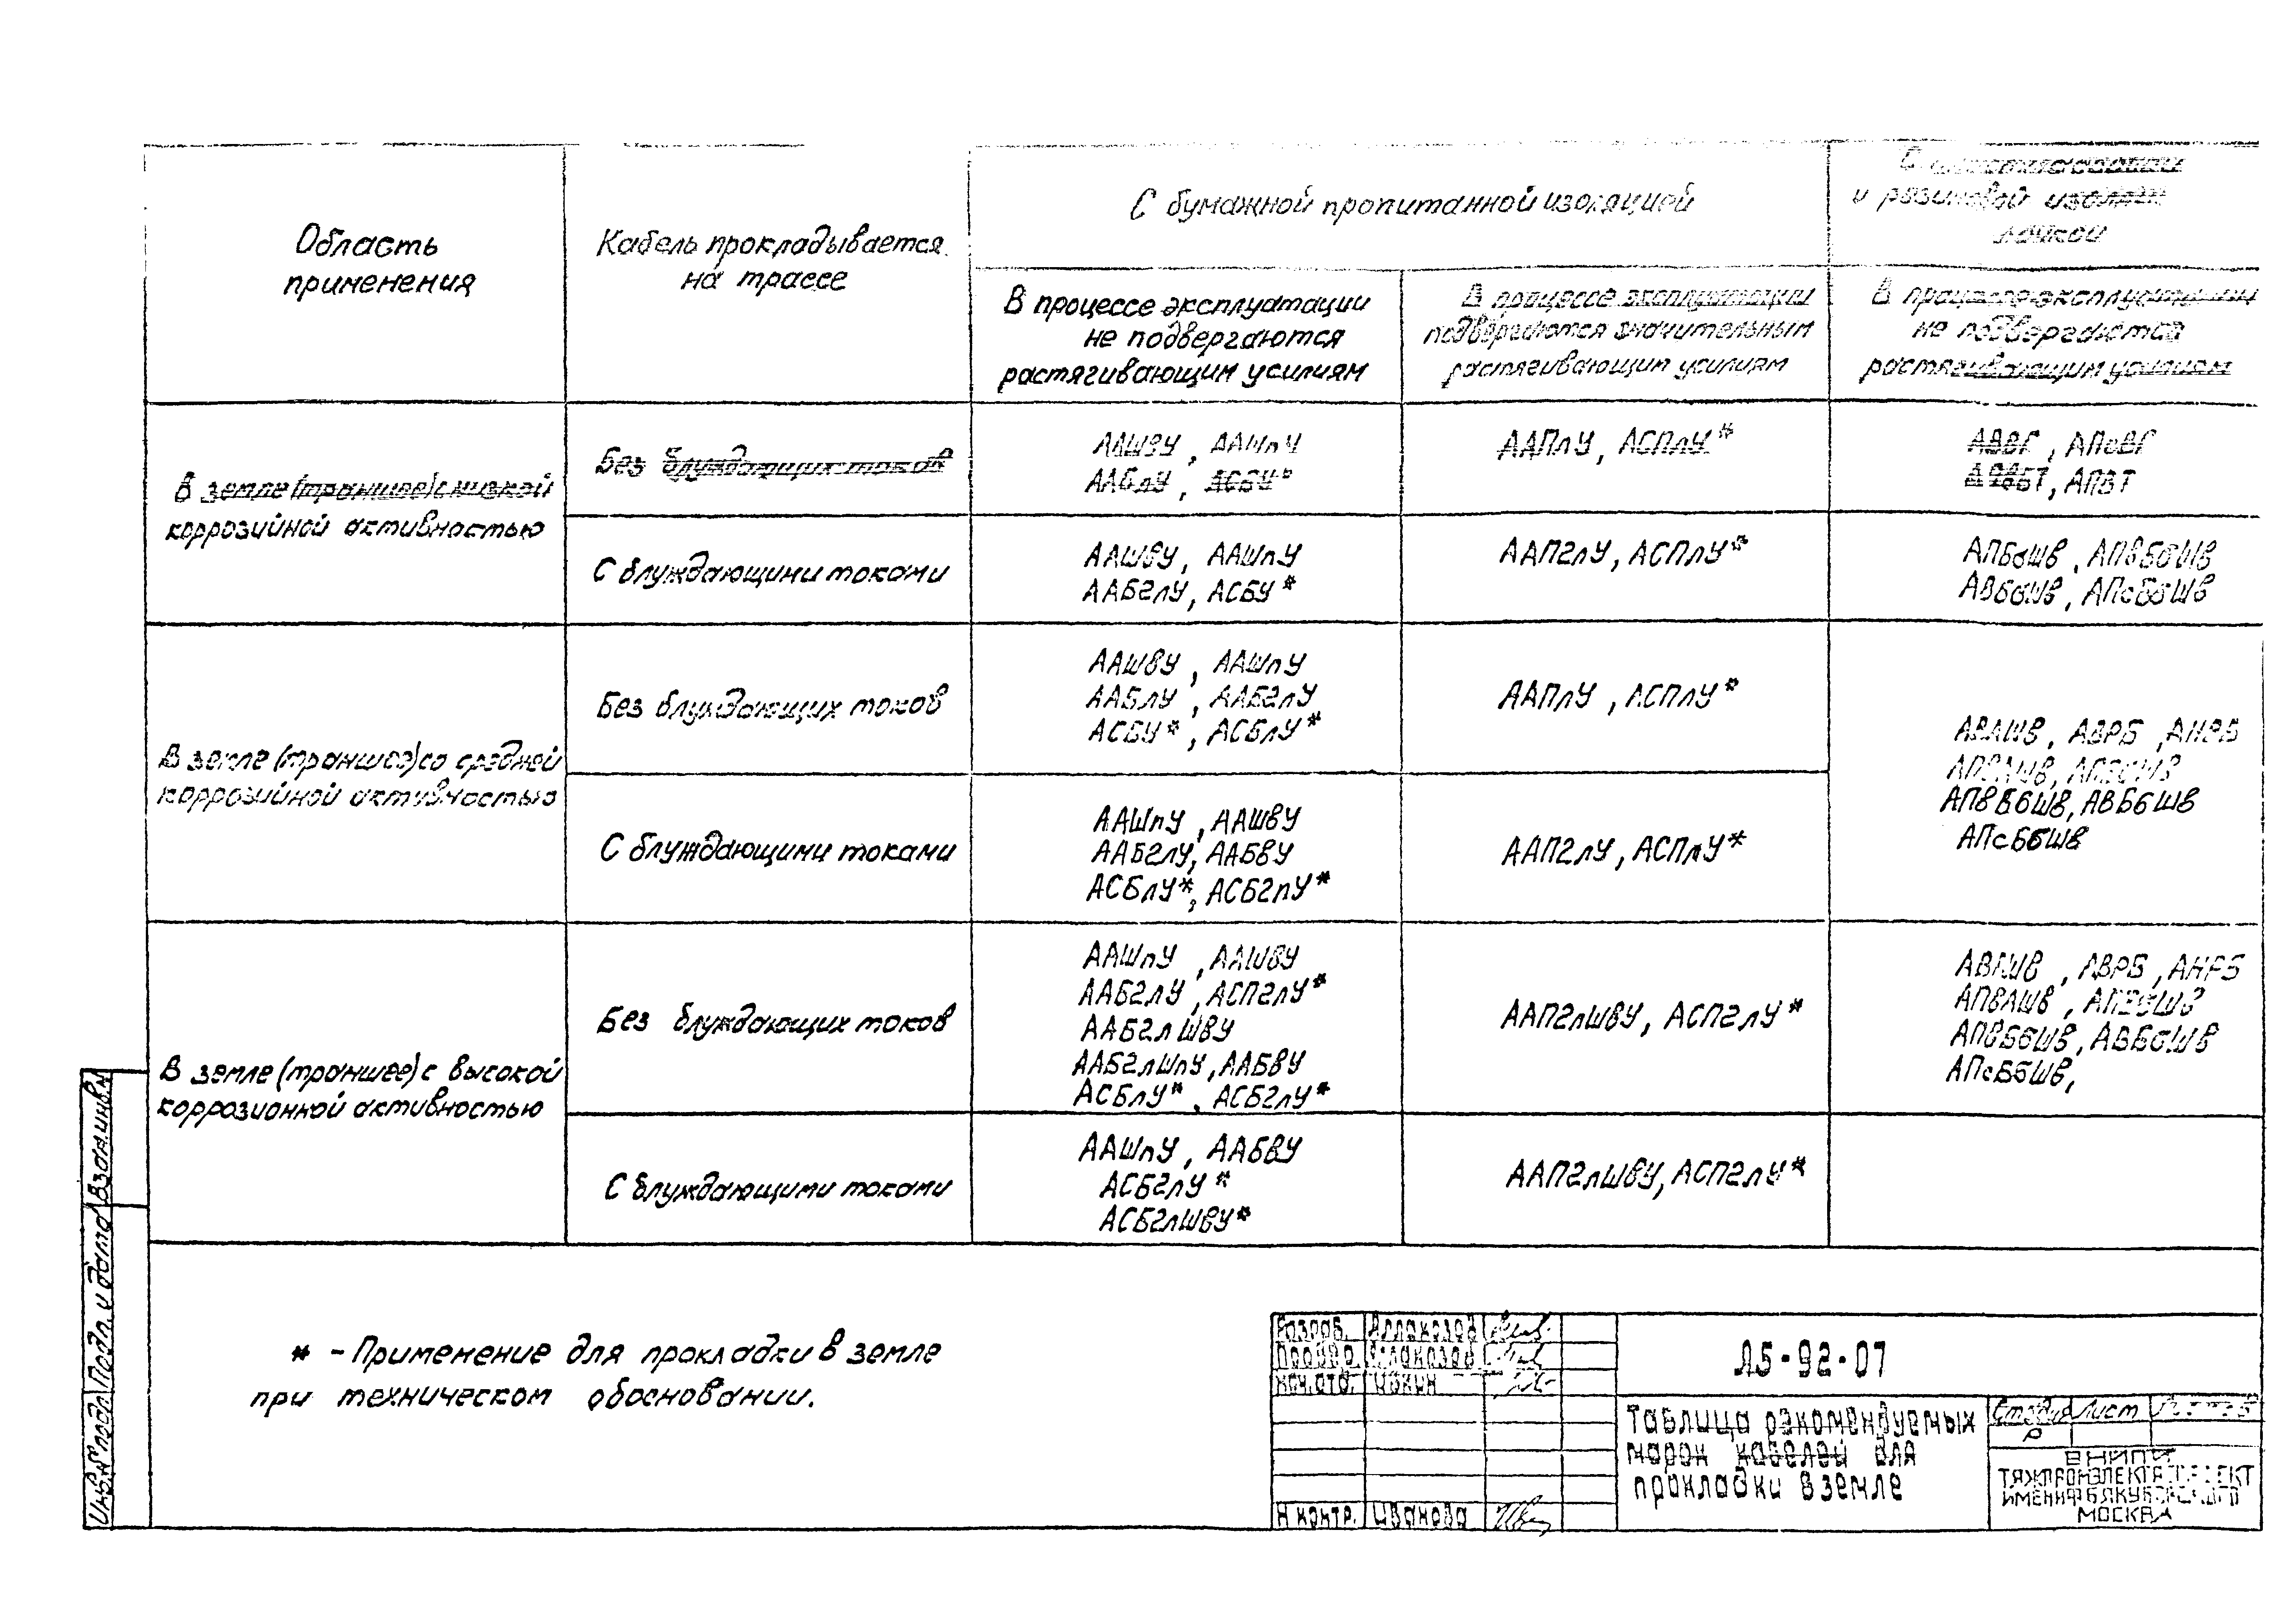 Область
применения
Кабель прокладывается
на трассе
С бумажной пропитанной изоляцией
С пластмассовой
и резиновой изоля-
цией
В процессе эксплуатации
не подвергаются
растягивающим усилиям
В процессе эксплуатации
подвергаются значительным
растягивающим усилиям
В процессе эксплуатации
не подвергаются
растягивающим усилиям
В земле (траншее) с низкой
коррозийной активностью
Без блуждающих токов
ААШвУ, ААШпУ
ААБлУ, АСБУ*
ААПлУ, АСПлУ*
АВВГ, АПсВГ
АПВГ
С блуждающими токами
ААШвУ, ААШпУ
ААБ2лУ, АСБУ*
ААП2лУ, АСПлУ*
АПБбШв, АПвБбШв
АВБбШв, АПсБбШв
В земле (траншее) со средней
коррозийной активностью
Без блуждающих токов
ААШвУ, ААШпУ
ААБлУ, ААБ2лУ
АСБУ*, АСБлУ*
ААПлУ, АСПлУ*
АВАШв, АВРБ, АНРБ
АПвАШв,
АПвБбШв, АВБбШв
АПсБбШв
С блуждающими токами
ААШпУ, ААШвУ
ААБ2лУ, ААБвУ
АСБлУ*, АСБ2лУ*
ААП2лУ, АСПлУ*
В земле (траншее) с высокой
коррозионной активностью
Без блуждающих токов
ААШпУ, ААШвУ
ААБ2лУ, АСП2лУ*
ААБ2лШвУ
ААБ2лШпУ, ААБвУ
АСБлУ*, АСБ2лУ*
ААП2лШвУ, АСП2лУ*
АВАШв, АВРБ, АНРБ
АПвАШв,
АПвБбШв, АВБбШв
АПсБбШв,
С блуждающими токами
ААШпУ, ААБвУ
АСБ2лУ*
АСБ2лШвУ*
ААП2лШвУ, АСП2лУ*
* - Применение для прокладки в земле
при техническом обосновании.
Разраб.
Провер.
Нач.отд. Ивкин
Н контр. Иванова
А5-92-07
Таблица рекомендуемых
марок кабелей для
прокладки в земле
Стадия Лист Листов
Р
ВНИПИ
ТЯЖПРОМЭЛЕКТРОПРОЕКТ
ИМЕНИ Ф.Б.ЯКУБОВСКОГО
МОСКВА
Инв.№ подл. Подп. и дата Взам.инв.№